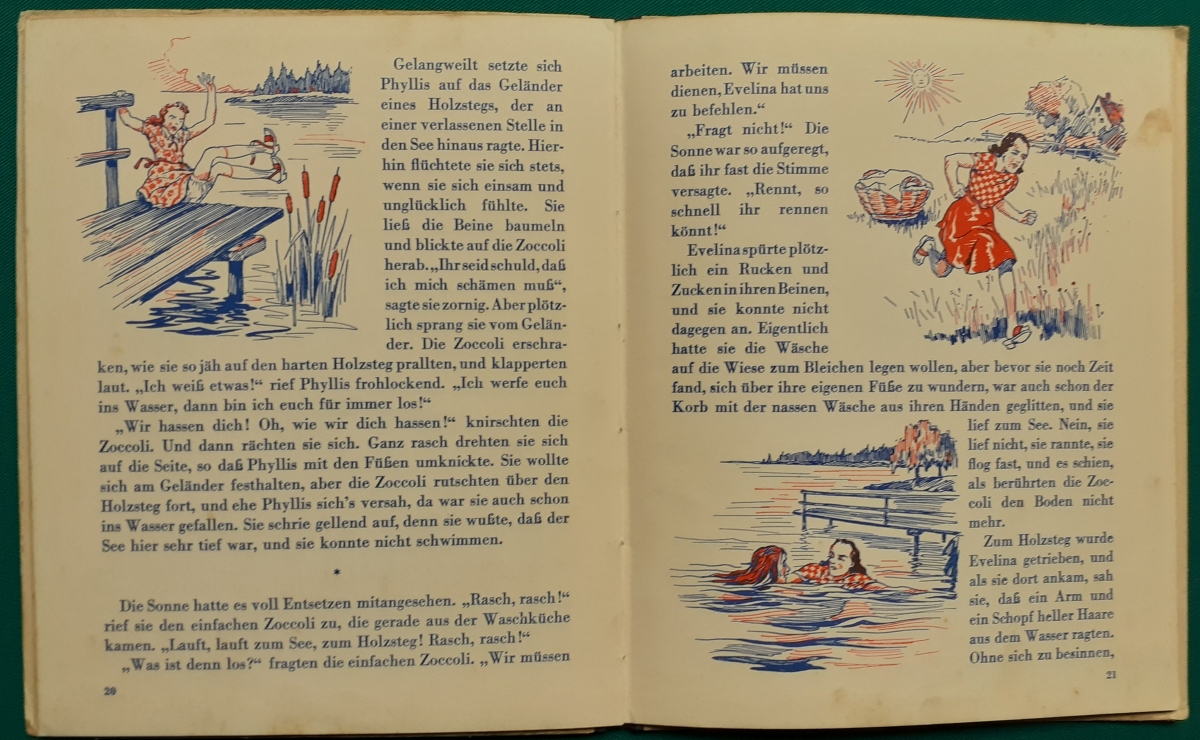 Gelangweilt setzte sich
Phyllis auf das Geländer
eines Holzstegs, der an
einer verlassenen Stelle in
den See hinaus ragte. Hier-
hin flüchtete sie sich stets,
wenn sie sich einsam und
unglücklich fühlte. Sie
ließ die Beine baumeln
und blickte auf die Zoccoli
herab. „Ihr seid schuld, daß
ich mich schämen muß“,
sagte sie zornig. Aber plötz-
lich sprang sie vom Gelän-
der. Die Zoccoli erschra-
ken, wie sie so jäh auf den harten Holzsteg prallten, und klapperten
laut. „Ich weiß etwas!“ rief Phyllis frohlockend. „Ich werfe euch
ins Wasser, dann bin ich euch für immer los!“
„Wir hassen dich! Oh, wie wir dich hassen!“ knirschten die
Zoccoli. Und dann rächten sie sich. Ganz rasch drehten sie sich
auf die Seite, so daß Phyllis mit den Füßen umknickte. Sie wollte
sich am Geländer festhalten, aber die Zoccoli rutschten über den
Holzsteg fort, und ehe Phyllis sich's versah, da war sie auch schon
ins Wasser gefallen. Sie schrie gellend auf, denn sie wußte, daß der
See hier sehr tief war, und sie konnte nicht schwimmen.
*
Die Sonne hatte es voll Entsetzen mitangesehen. „Rasch, rasch!“
rief sie den einfachen Zoccoli zu, die gerade aus der Waschküche
kamen. „Lauft, lauft zum See, zum Holzsteg! Rasch, rasch!“
„Was ist denn los?“ fragten die einfachen Zoccoli. „Wir müssen
20
arbeiten. Wir müssen
dienen, Evelina hat uns
zu befehlen.“
„Fragt nicht!“ Die
Sonne war so aufgeregt,
daß ihr fast die Stimme
versagte. „Rennt, so
schnell ihr rennen
könnt!“
Evelina spürte plötz-
lich ein Rucken und
Zucken in ihren Beinen,
und sie konnte nicht
dagegen an. Eigentlich
hatte sie die Wäsche
auf die Wiese zum Bleichen legen wollen, aber bevor sie noch Zeit
fand, sich über ihre eigenen Füße zu wundern, war auch schon der
Korb mit der nassen Wäsche aus ihren Händen geglitten, und sie
lief zum See. Nein, sie
lief nicht, sie rannte, sie
flog fast, und es schien,
als berührten die Zoc-
coli den Boden nicht
mehr.
Zum Holzsteg wurde
Evelina getrieben, und
als sie dort ankam, sah
sie, daß ein Arm und
ein Schopf heller Haare
aus dem Wasser ragten.
Ohne sich zu besinnen,
21